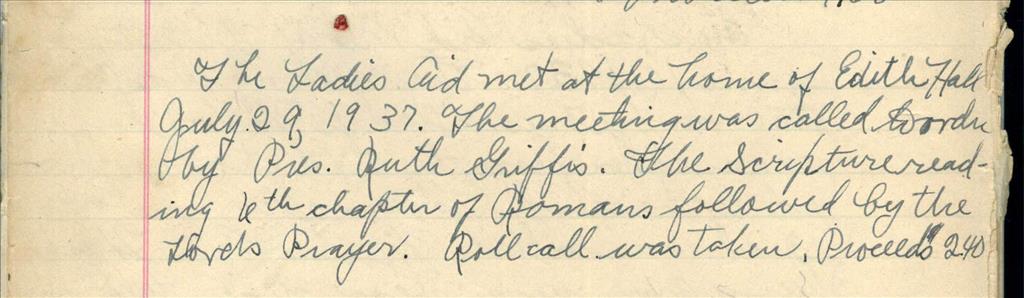 The Ladies Aid met at the home of Edith Hall
July 29, 1937. The meeting was called to order
by Pres. Ruth Griffis. The Scripture read-
ing chapter of Romans followed by the
Lords Prayer. Roll call was taken. Proceeds 2.40